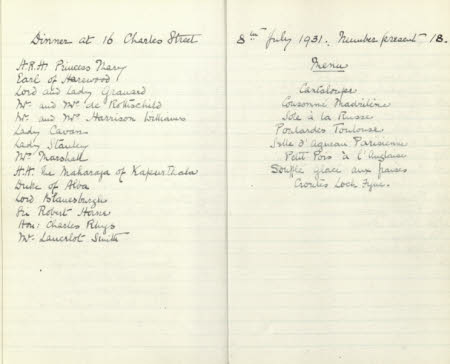 Dinner at 16 Charles Street
H.R.H. Princess Mary
Earl of Harewood
Lord and Lady Granard
Mr. and Mrs. de Rothschild
Mr. and Mrs. Harrison Williams
Lady Cavan
Lady Stanley
Mrs. Marshall
H.H. The Maharaja of Kapurthala
Duke of Alba
Lord Blanesburgh
Sir Robert Horne
Hon: Charles Rhys
Mr. Lancelot Smith
8th July 1931. Number present 18.
Menu
Cantaloupe
Consommé Madrilène
Sole à la Russe
Poulardes Toulouse
Selle d'agneau Parisienne
Petit Pois à l'Anglaise
Souffle glacé aux fraises
Croûtes Loch Fyne.